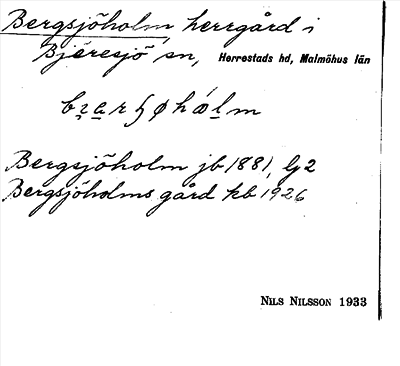 Bergsjöholm, herrgård i
Bjäresjö sn, Herrestads hd, Malmöhus län
Bergsjöholm jb 1881, lj 2
Bergsjöholms gård kb 1926
NILS NILSSON 1933